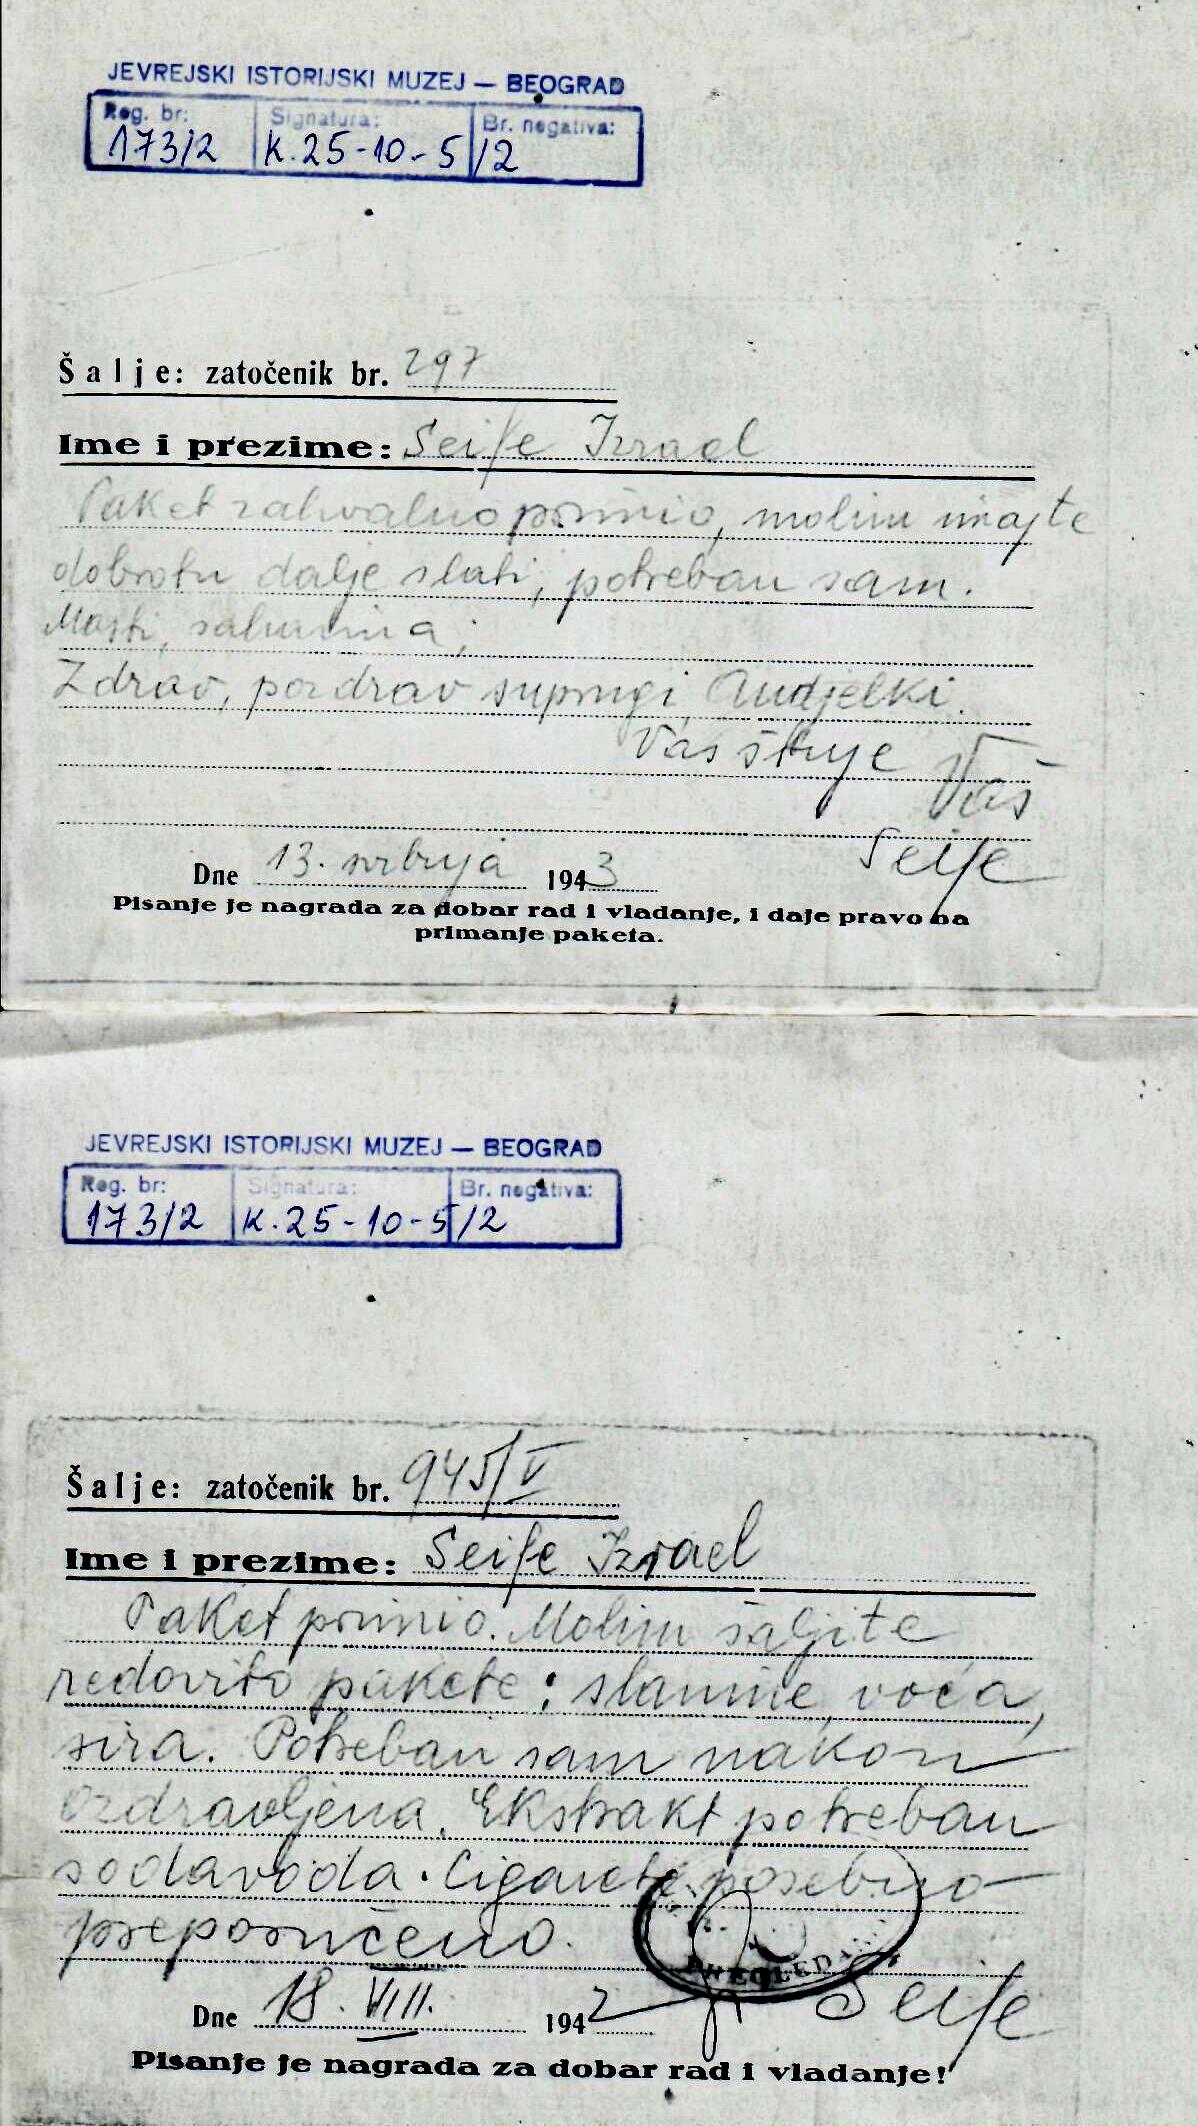 JEVREJSKI ISTORIJSKI MUZEJ — BEOGRAD
Reg. br: Signatura: Br. negativa:
173/2 K. 25-10-5/2
Šalje: zatočenik br. 297
Ime i prezime: Seife Izrael
Paket zahvalno primio, molim imajte
dobrotu dalje slati, potreban sam.
Masti, saharina,
Zdrav, pozdrav suprugi, Andjelki.
Vas štuje Vaš
Seife
Dne 13. srbnja 1943
Pisanje je nagrada za dobar rad i vladanje, i daje pravo na
primanje paketa.
JEVREJSKI ISTORIJSKI MUZEJ — BEOGRAD
Reg. br: Signatura: Br. negativa:
173/2 K. 25-10-5/2
Šalje: zatočenik br. 945/V
Ime i prezime: Seife Izrael
Paket primio. Molim šaljite
redovito pakete: slanine, voća,
sira. Potreban sam nakon
ozdravljena. Ekstrakt potreban
sodavoda. Cigarete posebno
preporučeno.
PREGLEDA
Dne 18. VIII. 1942 Seife
Pisanje je nagrada za dobar rad i vladanje!